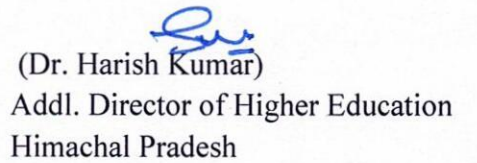 (Dr. Harish Kumar)
Addl. Director of Higher Education
Himachal Pradesh